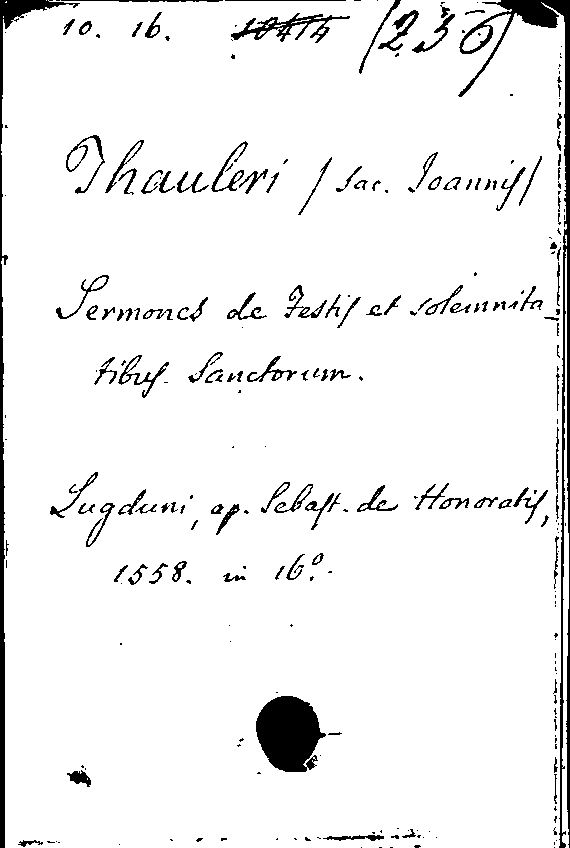 10. 16. 10414 (236)
Thauleri / sac. Joannis/
Sermones de Festis et solemnita_
tibus Sanctorum.
Lugduni, ap. Sebast. de Honoratis,
1558. in 16º.